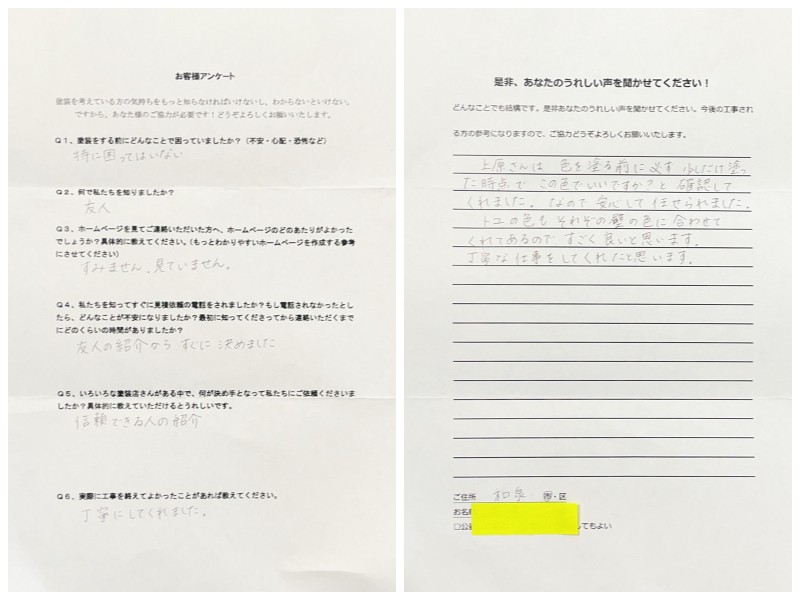 お客様アンケート
塗装を考えている方の気持ちをもっと知らなければいけないし、わからないといけない。
ですから、あなた様のご協力が必要です!どうぞよろしくお願いいたします。
Q1、塗装をする前にどんなことで困っていましたか?(不安・心配・恐怖など)
特に困ってはいない
Q2、何で私たちを知りましたか?
友人
Q3、ホームページを見てご連絡いただいた方へ、ホームページのどのあたりがよかった
でしょうか?具体的に教えてください。(もっとわかりやすいホームページを作成する参考
にさせてください)
すみません、見ていません。
Q4、私たちを知ってすぐに見積依頼の電話をされましたか?もし電話されなかったとし
たら、どんなことが不安になりましたか?最初に知ってくださってから連絡いただくまで
にどのくらいの時間がありましたか?
友人の紹介から すぐに 決めました
Q5、いろいろな塗装店さんがある中で、何が決め手となって私たちにご依頼くださいま
したか?具体的に教えていただけるとうれしいです。
信頼できる人の紹介
Q6、実際に工事を終えてよかったことがあれば教えてください。
丁寧にしてくれました。
是非、あなたのうれしい声を聞かせてください!
どんなことでも結構です。是非あなたのうれしい声を聞かせてください。今後の工事され
る方の参考になりますので、ご協力どうぞよろしくお願いいたします。
上原さんは 色を塗る前に必ず 少しだけ塗っ
た時点で この色でいいですか?と 確認して
くれました。なので 安心して 任せられました。
トユの色も それぞの壁の色に 合わせて
くれてあるので すごく 良いと思います。
丁寧な仕事をしてくれたと思います。
ご住所 和泉 市・区
お名前
□公
してもよい